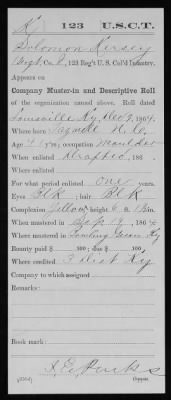 K | 123 | U.S.C.T.
Solomon Kersey
Sergt, Co. , 123 Reg't U. S. Col'd Infantry.
Appears on
Company Muster-in and Descriptive Roll
of the organization named above. Roll dated
Louisville Ky, 9, 186
Where born N. C.
Age y'rs; occupation
When enlisted Drafted, 186 .
Where enlisted
For what period enlisted One years.
Eyes Blk ; hair Blk
Complexion Yellow; height 6 ft. in.
When mustered in Sep 19, 186
Where mustered in Bowling Green Ky
Bounty paid $ 100; due $ 100
Where credited 3 Dist Ky
Company to which assigned
Remarks:
Book mark:
Copyist.